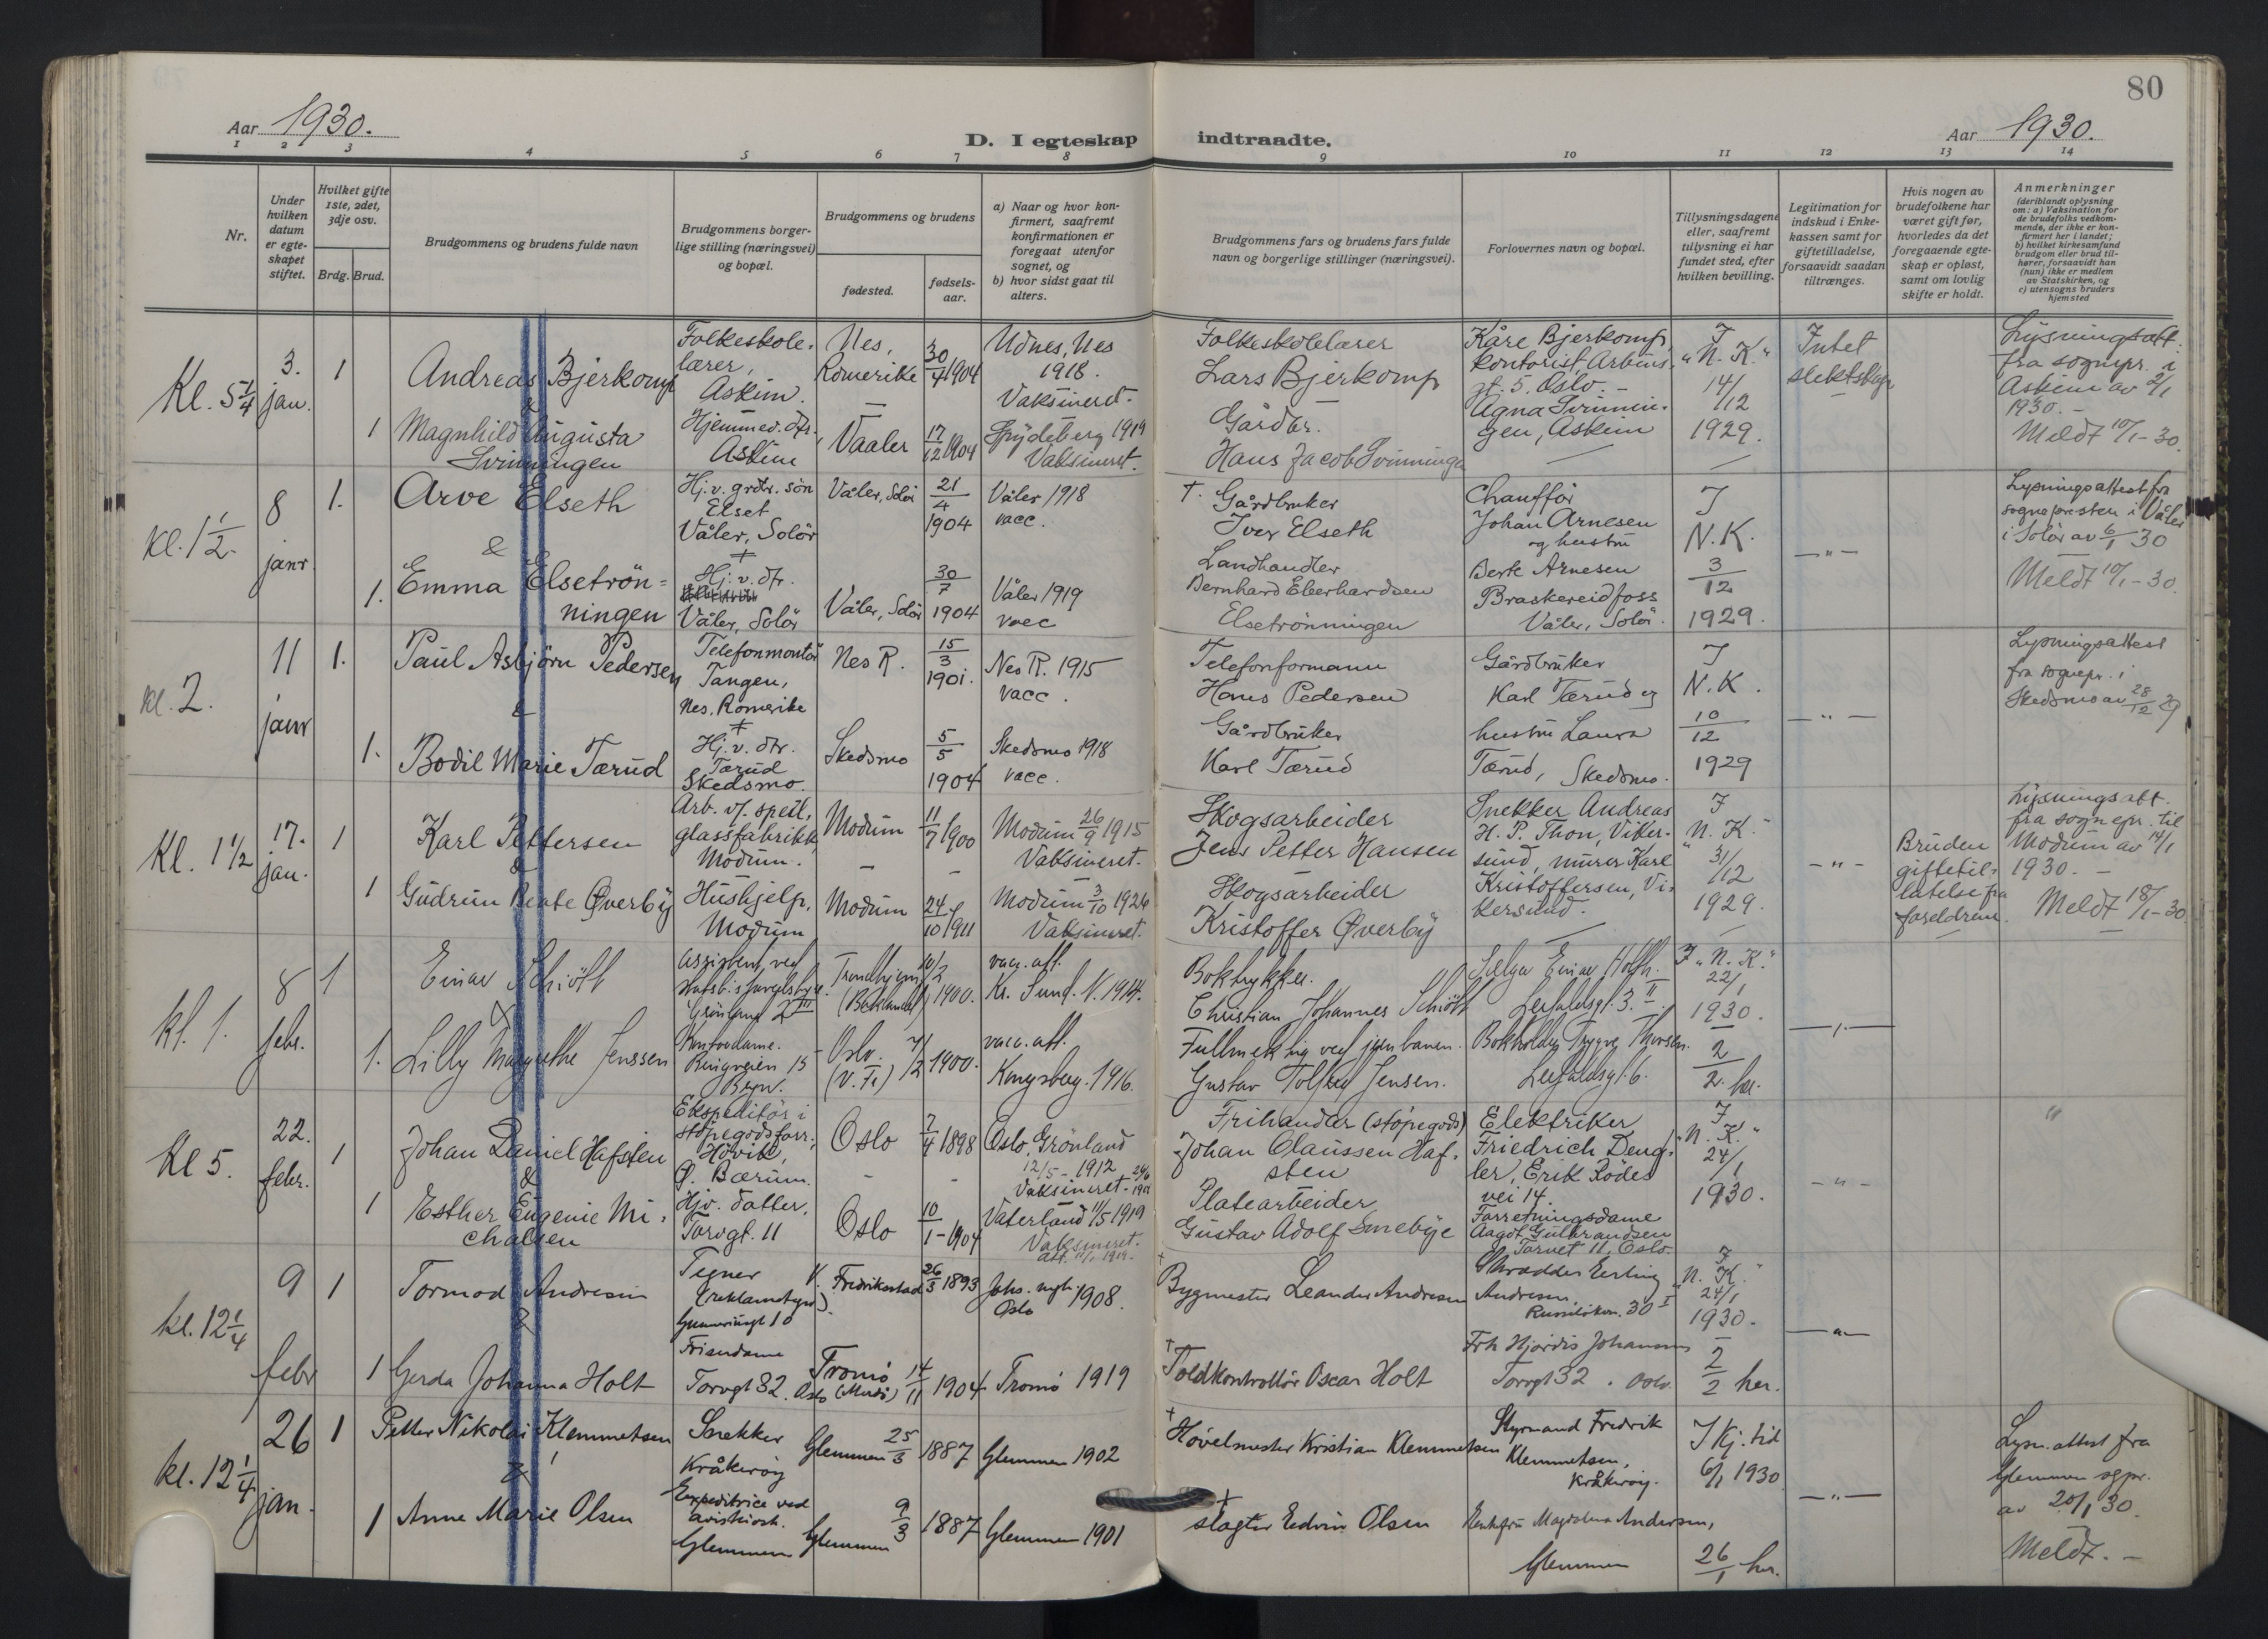 80
Aar 1930.
D. I egteskap indtraadte.
Aar 1930.
1 2 3 4 5 6 7 8 9 10 11 12 13 14
Nr.
Under
hvilken
datum
er egte-
skapet
stiftet.
Hvilket gifte
1ste, 2det,
3dje osv.
Brdg. Brud.
Brudgommens og brudens fulde navn
Brudgommens borger-
lige stilling (næringsvei)
og bopæl.
Brudgommens og brudens
fødested.
fødsels-
aar.
a) Naar og hvor kon-
firmert, saafremt
konfirmationen er
foregaat utenfor
sognet, og
b) hvor sidst gaat til
alters.
Brudgommens fars og brudens fars fulde
navn og borgerlige stillinger (næringsvei).
Forlovernes navn og bopæl.
Tillysningsdagene
eller, saafremt
tillysning ei har
fundet sted, efter
hvilken bevilling.
Legitimation for
indskud i Enke-
kassen samt for
giftetilladelse,
forsaavidt saadan
tiltrænges.
Hvis nogen av
brudefolkene har
været gift før,
hvorledes da det
foregaaende egte-
skap er opløst,
samt om lovlig
skifte er holdt.
Anmerkninger
(deriblandt oplysning
om: a) Vaksination for
de brudefolks vedkom-
mende, der ikke er kon-
firmert her i landet;
b) hvilket kirkesamfund
brudgom eller brud til-
hører, forsaavidt han
(hun) ikke er medlem
av Statskirken, og
c) utensogns bruders
hjemsted
Kl. 5 1/4
3.
jan.
1
Andreas Bjerkomp
&
Folkeskole-
lærer,
Askim.
Nes,
Romerike
30/4 1904
Udnes, Nes
1918.
Vaksineret.
Folkeskolelærer
Lars Bjerkomp
Kåre Bjerkomp,
kontorist, Arbins-
gt. 5. Oslo. -
I
"N. K."
14/12
1929.
Intet
slektskap
Lysningsatt.
fra sognepr. i
Askim av 2/1
1930. -
Meldt 10/1-30.
1
Magnhild Augusta
Svinningen
Hjemmev. dtr.,
Askim
Vaaler
17/12 1904
Spydeberg 1919
Vaksineret.
Gårdbr.
Hans Jacob Svinningen
Agna Svinnin-
gen, Askim
kl. 1 1/2.
8
janr
1.
Arve Elseth
&
Hj. v. grdbr. søn
Elset
Våler, Solør
+
Våler, Solør
21/4
1904
Våler 1918
vacc.
† Gårdbruker
Iver Elseth
Chauffør
Johan Arnesen
og hustru
I
N. K.
3/12
1929.
-"-
Lysningsattest fra
sognepresten i Våler
i Solør av 6/1 30
Meldt 10/1-30.
1.
Emma Elsetrøn=
ningen
Hj. v. dtr.
Våler, Solør
Våler, Solør
30/7
1904
Våler 1919
vacc
Landhandler
Bernhard Eberhardsen
Elsetrønningen
Berte Arnesen
Braskereidfoss
Våler, Solør.
kl. 2.
11
janr
1.
Paul Asbjørn Pedersen
&
Telefonmontør
Tangen,
Nes. Romerike
+
Nes R.
15/3
1901.
Nes R. 1915
vacc.
Telefonformann
Hans Pedersen
Gårdbruker
Karl Tærud og
I
N. K.
10/12
1929
-"-
Lysningsattest
fra sognepr. i
Skedsmo av 28/12 29
1.
Bodil Marie Tærud
Hj. v. dtr.
Tærud
Skedsmo.
Skedsmo
5/5
1904
Skedsmo 1918
vacc.
Gårdbruker
Karl Tærud
hustru Laura
Tærud, Skedsmo.
Kl. 1 1/2
17.
jan.
1
Karl Pettersen
&
Arb. v/. speil,
glassfabrikk,
Modum.
Modum
11/7 1900
Modum 26/9 1915
Vaksineret.
Skogsarbeider
Jens Petter Hansen
Snekker Andreas
H. P. Thon, Viker-
sund, murer Karl
Kristoffersen, Vi-
kersund.
I
"N. K."
31/12
1929.
-"-
Bruden
giftetil-
latelse fra
foreldrene.
Lysningsatt.
fra sognepr. til
Modum av 14/1
1930. -
Meldt 18/1-30
1
Gudrun Beate Øverby
Hushjelp,
Modum
Modum
24/10 1911
Modum 3/10 1926
Vaksineret.
Skogsarbeider
Kristoffer Øverby
kl. 1.
8
febr.
1
Einar Schiøth
&
Assistent ved
Grønland 2 III
Trondhjem
(Bakland)
1900.
vacc. att.
Kr. Sund. N. 1914.
Boktrykker.
Christian Johannes Schiøth
Selger Einar Holth.
Leirfaldsgt. 3. II
I "N. K."
22/1
1930.
2/2 her.
1.
Lilly Margrethe Jenssen
Kontordame.
Ringveien 15
Oslo.
1900.
vacc. att.
Kongsberg. 1916.
Fullmektig ved jernbanen.
Gustav Tolfsen Jensen.
Bokholder Trygve Thorsen.
Leirfaldsgt. 6.
Kl 5.
22.
febr.
1
Johan Daniel Hafsten
&
Ekspeditør i
støpegodsforr.,
Høvik,
Ø. Bærum.
Oslo
7/4 1898
Oslo, Grønland
12/5 - 1912
Vaksineret -
Frihandler (støpegods)
Johan Claussen Haf-
sten
Elektriker
Friedrich Deng-
ler, Erik Rødes
vei 14.
I
"N. K."
24/1
1930.
-"-
"
1
Esther Eugenie Mi-
chalsen
Hjv. datter.
Torvgt. 11
Oslo
10/1 - 1904
Vaterland 11/5 1919
Vaksineret.
Platearbeider
Gustav Adolf Smebye
Forretningsdame
Aagot Gulbrandsen
Torvet 11, Oslo.
kl. 12 1/4
9
febr
1
Tormod Andresen
&
Tegner
(reklametegn.).
Fredrikstad
26/3 1893
Johs. mgh.
Oslo 1908.
† Bygmester Leander Andresen
Skrædder Erling
Andresen.
30 I
I
"N. K."
24/1
1930.
2/2 her.
1
Gerda Johanna Holt
Frisørdame
Torvgt 32. Oslo
Tromø
14/11 1904
Tromø 1919
† Toldkontrollør Oscar Holt
Frk Hjørdis Johansen
Torvgt 32. Oslo.
kl. 12 1/4
26
jan.
1
Petter Nikolai Klemmetsen
&
Snekker
Kråkerøy
Glemmen
25/3 1887
Glemmen 1902
† Høvelmester Kristian Klemmetsen
Styrmand Fredrik
Klemmetsen,
Kråkerøy.
I Kj. tid
6/1 1930
26/1 her.
-"-
Lysn. attest fra
Glemmen sgpr.
av 20/1 30.
Meldt. -
1
Anne Marie Olsen
Expeditrice ved
aviskiosk.
Glemmen
Glemmen
9/3 1887
Glemmen 1901
† slagter Edvin Olsen
Enkefru Magdalena Andersen,
Glemmen